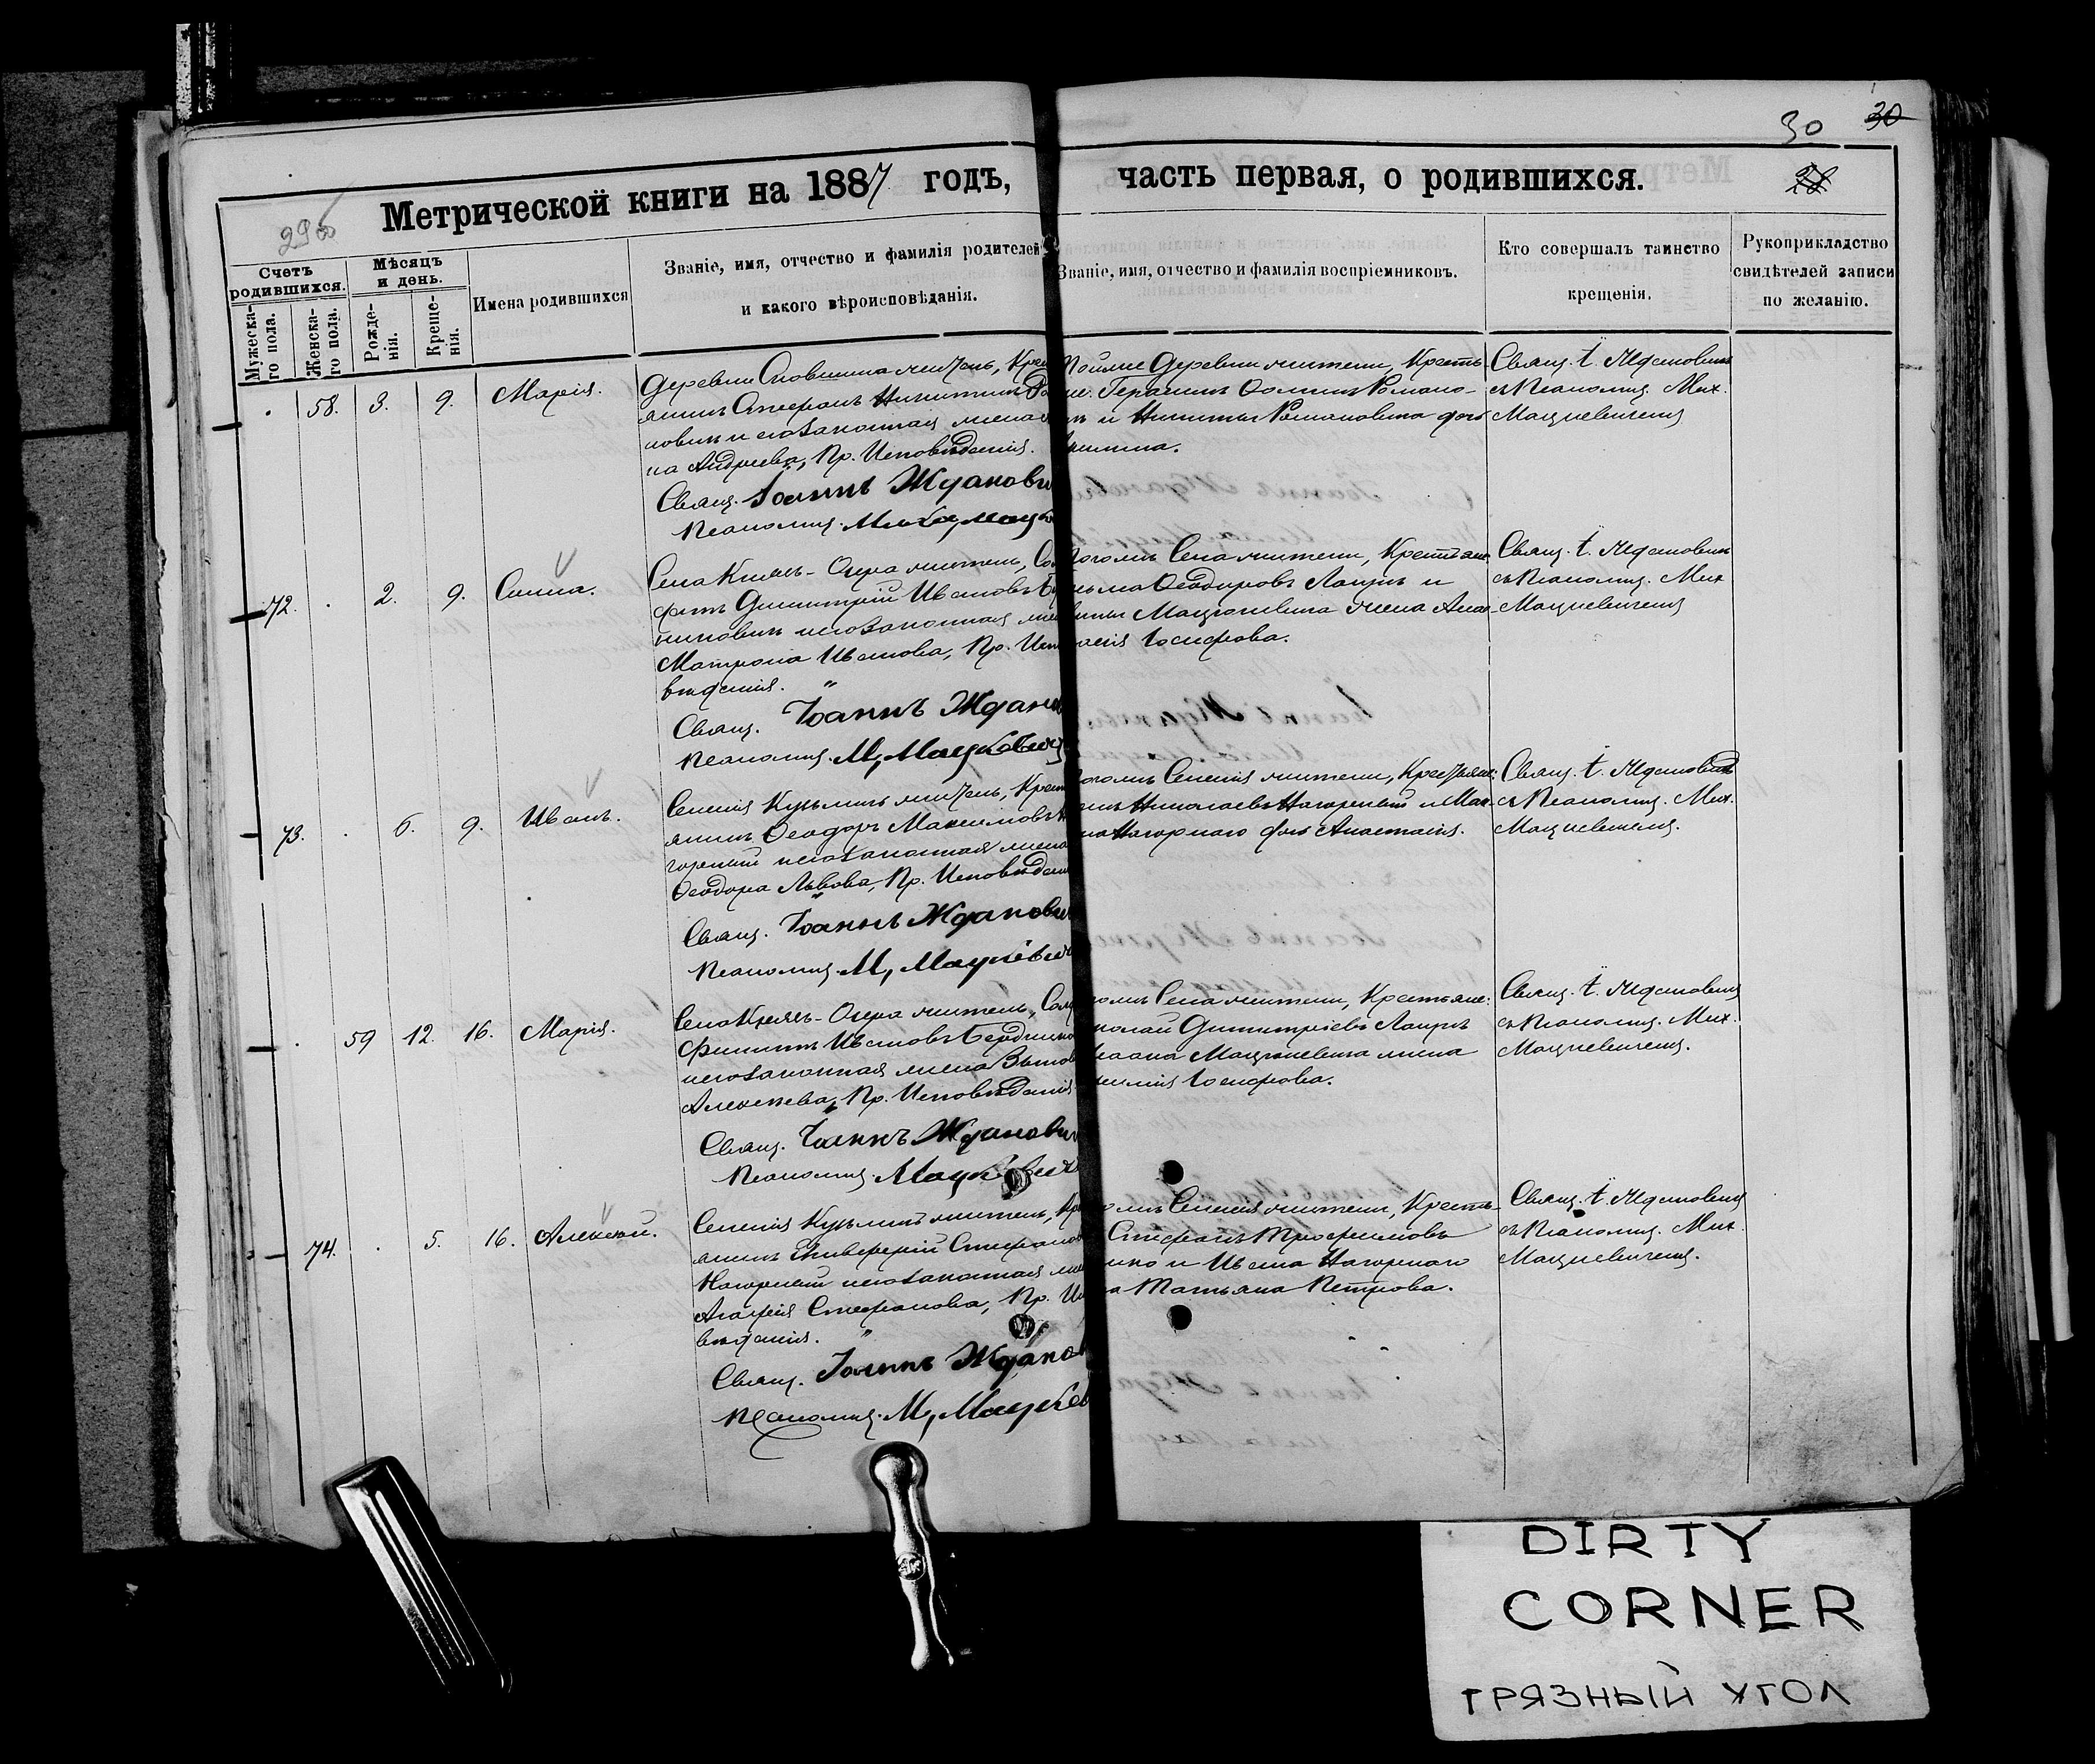 30 30
28
29 об
Метрической книги на 1887 годъ,
часть первая, о родившихся.
Счетъ родившихся.
Мужеска-
го пола.
Женска-
го пола.
Мѣсяцъ
и день.
Рожде-
нія.
Креще-
нія.
Имена родившихся
Званіе, имя, отчество и фамилія родителей
и какого вѣроисповѣданія.
Званіе, имя, отчество и фамилія воспріемниковъ.
Кто совершалъ таинство
крещенія.
Рукоприкладство
свидѣтелей записи
по желанію.
58. 3. 9. Марія.
Деревни житель, Крес
янинъ Стефанъ Никитинъ Ро
новичъ и его законная жена
на Андреева, Пр. Исповѣданія.
Свящ. Іоаннъ Жданови
Псаломщ.
Тойже Деревни жители, Кресть
Романо-
и Никиты Романовича дочь
Свящ. І. Ждановичъ
съ Псаломщ. Мих.
Мацкевичемъ
72. 2. 9.
Села Князь-Озера житель, Со
Димитрій Ивановъ
и его законная
Матрона Иванова, Пр. Испо
вѣданія.
Свящ. Іоаннъ Ждано
Псаломщ. М. Мацкевич
тогожъ Села жители, Крестьяне
Ѳеодоровъ Лапцъ и
жена Анас-
тасія Іосифова.
Свящ. І. Ждановичъ
съ Псаломщ. Мих
Мацкевичемъ
73. 6. 9. Иванъ.
Селенія Кузьмичъ житель, Крест
янинъ Ѳеодоръ Максимовъ На
горный и его законная жена
Ѳеодора Львова, Пр. Исповѣдан
Свящ. Іоаннъ Жданович
Псаломщ. М. Мацкевич
тогожъ Селенія жители, Крестьяне:
Николаевъ Нагорный и Мак-
Нагорнаго дочь Анастасія.
Свящ. І. Ждановичъ
съ Псаломщ. Мих.
Мацкевичемъ.
59 12. 16. Марія.
Села Князь-Озера житель, Сол
Филиппъ Ивановъ
и его законная жена
Алексѣева, Пр. Исповѣданія
Свящ. Іоаннъ Жданович
Псаломщ. Мацкевич
тогожъ Села жители, Крестьяне:
Николай Димитріевъ Лапцъ
жена
Іосифова.
Свящ. І. Ждановичъ
съ Псаломщ. Мих.
Мацкевичемъ.
74. 5. 16. Алексѣй.
Селенія Кузьмичъ житель, Кр
янинъ Елиферій Стефанов
Нагорный и его законная же
Агафія Стефанова, Пр. Испо
вѣданія.
Свящ. Іоаннъ Ждано
Псаломщ. М. Мацкев
Селенія жители, Кресть-
Стефанъ Трофимовъ
и Ивана Нагорнаго
Татьяна Петрова.
Свящ. І. Ждановичъ
съ Псаломщ. Мих.
Мацкевичемъ.
DIRTY
CORNER
ГРЯЗНЫЙ УГОЛ